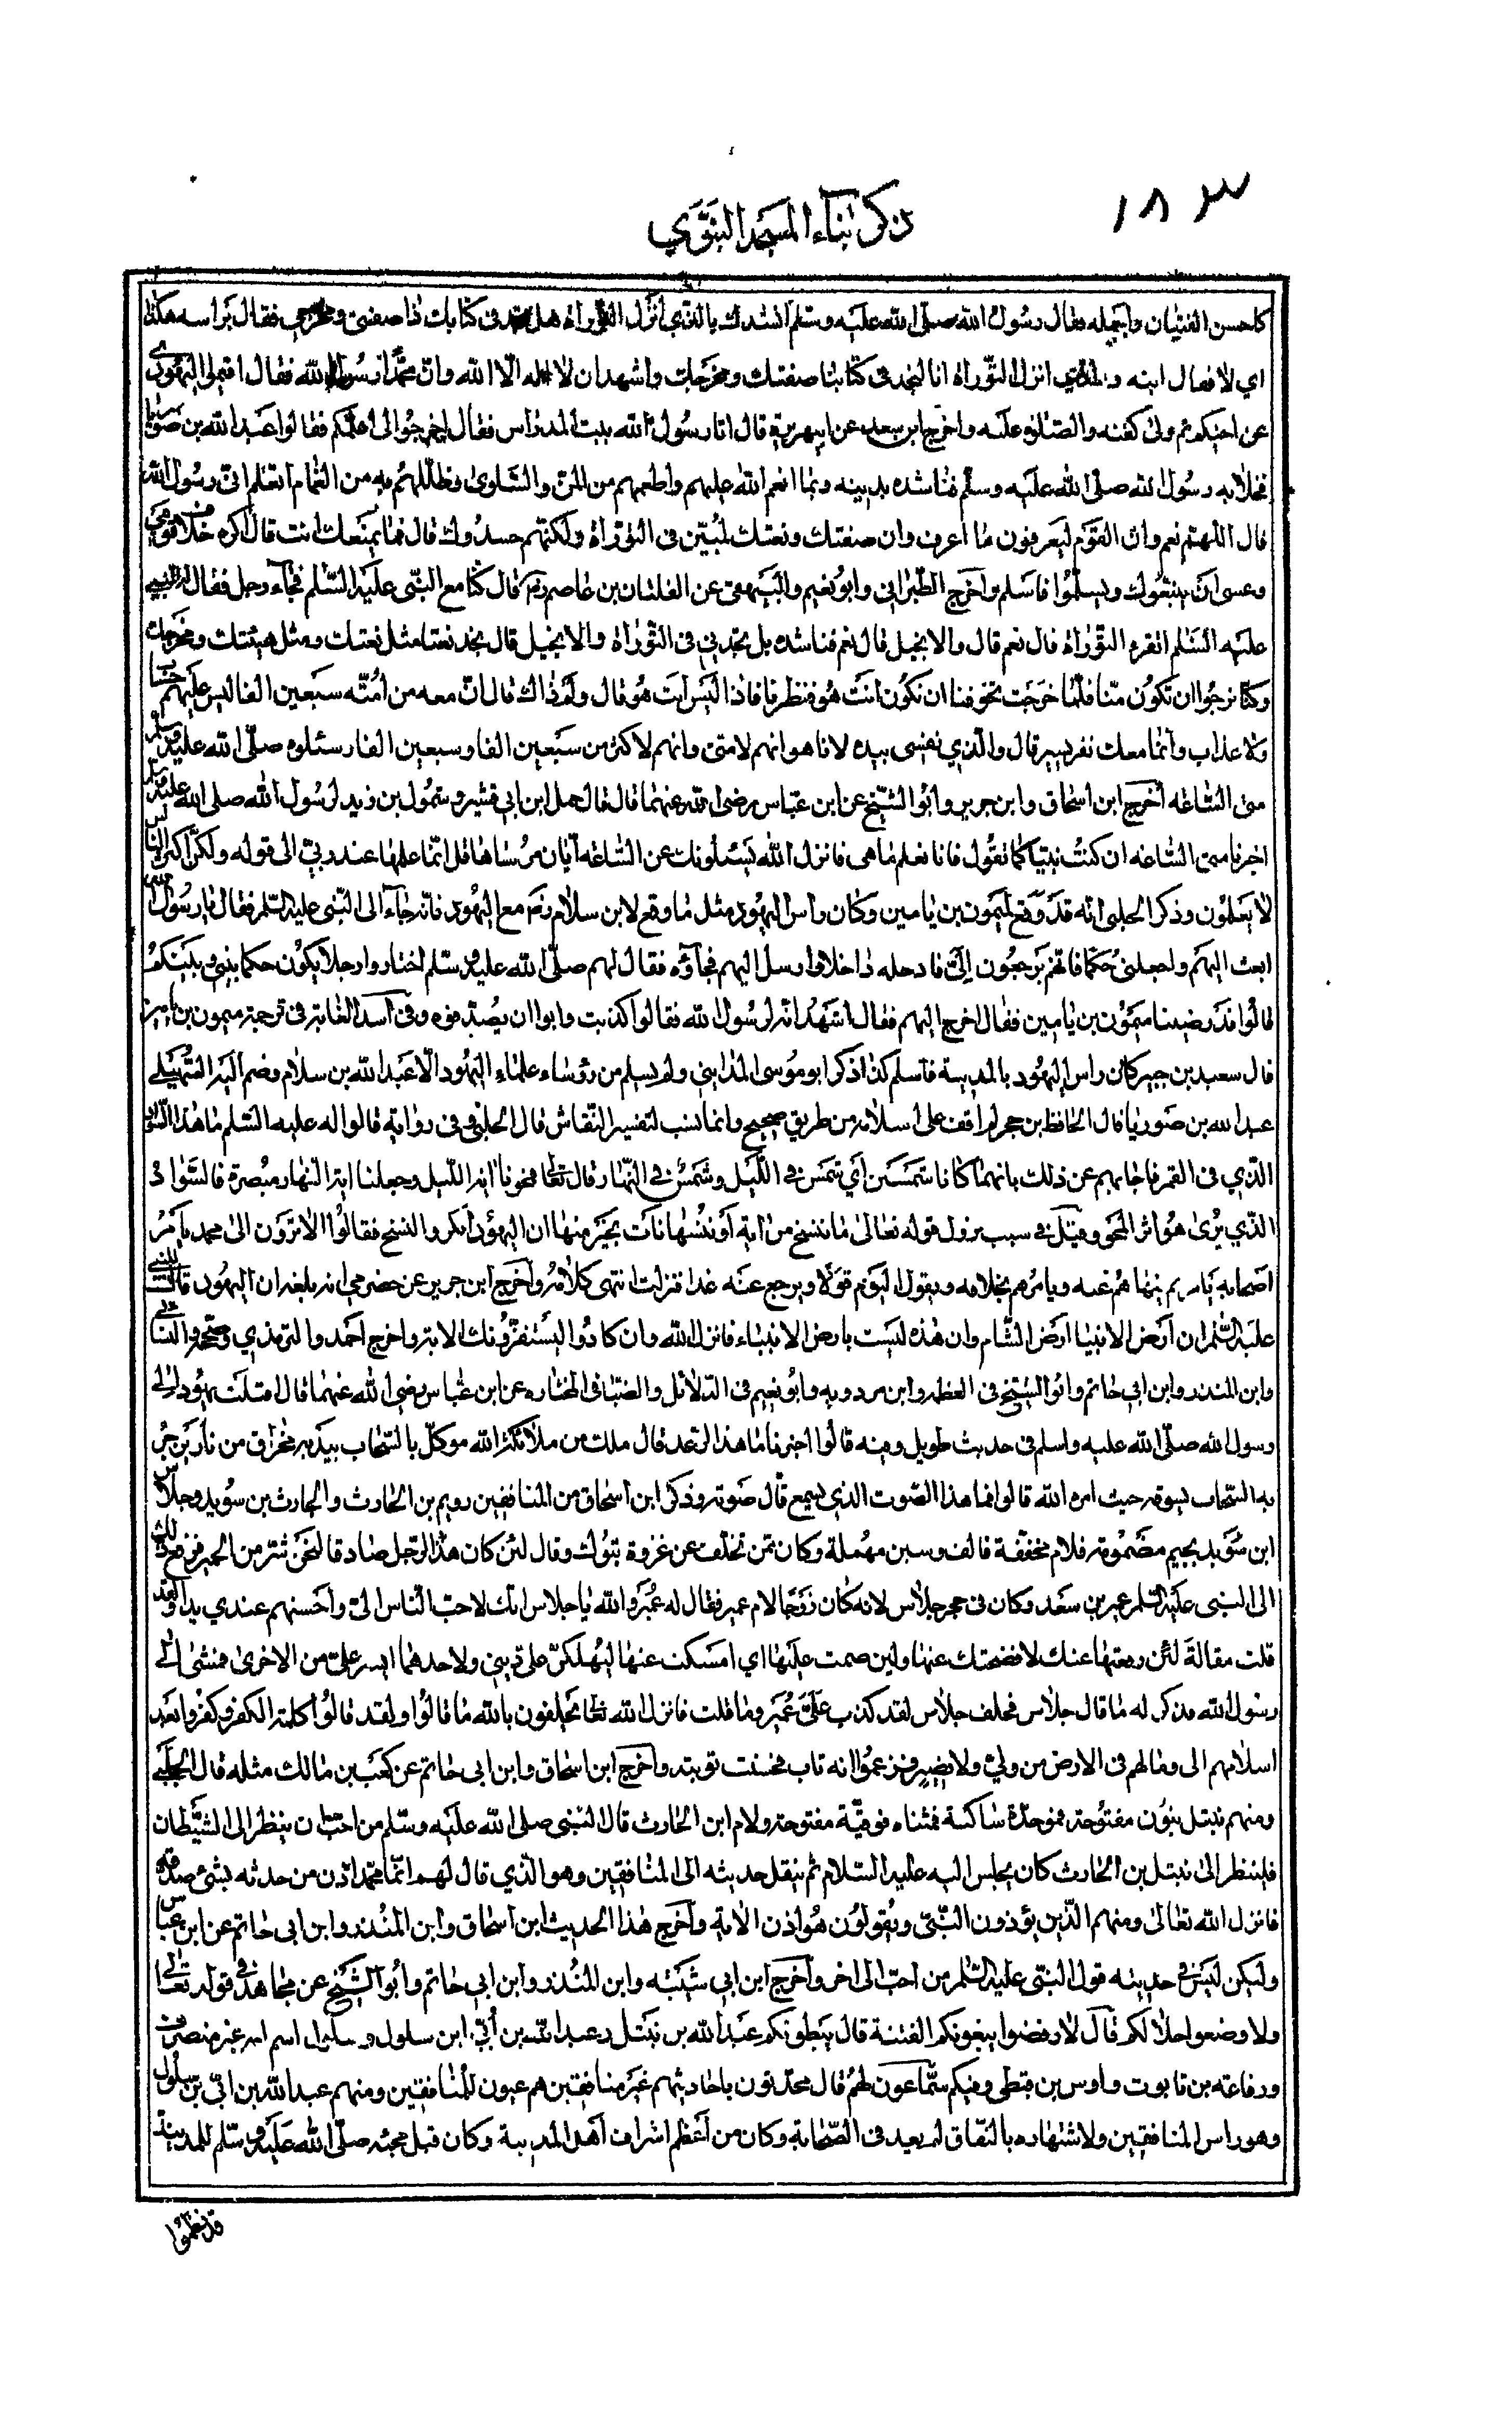 ١٨٣
ذكر بناء المسجد النبوي
كاحسن الفتيان واجمله فقال رسول الله صلى الله عليه وسلم انشدك بالذي انزل التوراة هل تجد في كتابك ذا صفتي ومخرجي فقال براسه هكذا
اي لا فقال ابنه والذي انزل التوراة انا لنجد في كتابنا صفتك ومخرجك واشهد ان لا اله الا الله وان محمدا رسول الله فقال اقيموا اليهودي
عن اخيكم ثم ولى كفنه والصلاة عليه واخرج ابن سعد عن ابي هريرة قال اتا رسول الله بيت المدراس فقال اخرجوا الى اعلمكم فقالوا عبد الله بن صوريا
فخلا به رسول الله صلى الله عليه وسلم فناشده بدينه وبما انعم الله عليهم واطعمهم من المن والسلوى وظللهم به من الغمام اتعلم اني رسول الله
قال اللهم نعم وان القوم ليعرفون ما اعرف وان صفتك ونعتك لمبين في التوراة ولكنهم حسدوك قال فما يمنعك انت قال اكره خلاف قومي
وعسى ان يتبعوك ويسلموا فاسلم واخرج الطبراني وابو نعيم والبيهقي عن الفلتان بن عاصم رضه قال كنا مع النبي عليه السلام فجاء رجل فقال له النبي
عليه السلام اتقرء التوراة قال نعم قال والانجيل قال نعم فناشده بل تجدني في التوراة والانجيل قال نجد نعتا مثل نعتك ومثل هيئتك ومخرجك
وكنا نرجوا ان تكون منا فلما خرجت تخوفنا ان تكون انت هو فنظرنا فاذا ليس انت هو قال ولم ذاك قال ان معه من امته سبعين الفا ليس عليهم حساب
ولا عذاب وانما معك نفر يسير قال والذي نفسي بيده لانا هو انهم لامتي وانهم لاكثر من سبعين الفا وسبعين الفا وسئلوه صلى الله عليه وسلم
متى الساعة اخرج ابن اسحاق وابن جرير وابو الشيخ عن ابن عباس رضي الله عنهما قال قال جمل ابن ابي قشير وسمول بن زيد لرسول الله صلى الله عليه وسلم
اخبرنا متى الساعة ان كنت نبيا كما تقول فانا نعلم ما هي فانزل الله يسئلونك عن الساعة ايان مرساها قل انما علمها عند ربي الى قوله ولكن اكثر الناس
لا يعلمون وذكر الحلبي انه قد وقع لميمون بن يامين وكان راس اليهود مثل ما وقع لابن سلام رضه مع اليهود فانه جاء الى النبي عليه السلم فقال يا رسول الله
ابعث اليهم واجعلني حكما فانهم يرجعون الي فادخله داخلا وارسل اليهم فجاؤه فقال لهم صلى الله عليه وسلم اختاروا رجلا يكون حكما بيني وبينكم
قالوا قد رضينا ميمون بن يامين فقال اخرج اليهم فقال اشهد انه لرسول الله فقالوا كذبت وابوا ان يصدقوه وفي اسد الغابة في ترجمة ميمون بن يامين
قال سعيد بن جبير كان راس اليهود بالمدينة فاسلم كذا ذكر ابو موسى المدايني ولم يسلم من رؤساء علماء اليهود الا عبد الله بن سلام وضم اليه السهيلي
عبد الله بن صوريا قال الحافظ بن حجر لم اقف على اسلامه من طريق صحيح وانما نسب لتفسير النقاش قال الحلبي وفي رواية قالوا له عليه السلم ما هذا السواد
الذي في القمر فاجابهم عن ذلك بانهما كانا شمسين اي شمس في الليل وشمس في النهار قال تعالى فمحونا اية الليل وجعلنا اية النهار مبصرة فالسواد
الذي يرى هو اثر المحو وقيل في سبب نزول قوله تعالى ما ننسخ من اية او ننسها نات بخير منها ان اليهود انكروا النسخ فقالوا الا ترون الى محمد يامر
اصحابه بامر ثم ينهاهم عنه ويامرهم بخلافه ويقول اليوم قولا ويرجع عنه غدا فنزلت انتهى كلامه واخرج ابن جرير عن حضرمي انه بلغه ان اليهود قالت للنبي
عليه السلم ان ارض الانبيا ارض الشام وان هذه ليست بارض الانبياء فانزل الله وان كادوا ليستفزونك الاية واخرج احمد والترمذي وصححه والنسائي
وابن المنذر وابن ابي حاتم وابو الشيخ في العظمة وابن مردويه وابو نعيم في الدلائل والضيا في المختاره عن ابن عباس رضي الله عنهما قال اقبلت يهود الى
رسول الله صلى الله عليه واسلم في حديث طويل وفيه قالوا اخبرنا ما هذا الرعد قال ملك من ملائكة الله موكل بالسحاب بيده مخراق من نار يزجر
به السحاب يسوقه حيث امره الله قالوا فما هذا الصوت الذي يسمع قال صوته وذكر ابن اسحاق من المنافقين رويم بن الحارث والحارث بن سويد وجلاس
ابن سويد بجيم مضمومة فلام مخففة فالف وسين مهملة وكان ممن تخلف عن غزوة تبوك وقال لئن كان هذا الرجل صادقا لنحن شر من الحمير فرفع ذلك
الى النبي عليه السلم عمير بن سعد وكان في حجر جلاس لانه كان زوجا لام عمير فقال له عمير والله يا جلاس انك لاحب الناس الي واحسنهم عندي يدا ولقد
قلت مقالة لئن رفعتها عنك لافضحتك عنها ولين صمت عليها اي امسكت عنها ليهلكن علي ديني ولاحدهما ايسر علي من الاخرى فمشى الى
رسول الله فذكر له ما قال جلاس فحلف جلاس لقد كذب علي عمير وما قلت فانزل الله تعا يحلفون بالله ما قالوا ولقد قالوا كلمة الكفر وكفروا بعد
اسلامهم الى وما لهم في الارض من ولي ولا نصير فزعموا انه تاب فحسنت توبته واخرج ابن اسحاق وابن ابي حاتم عن كعب بن مالك مثله قال الحلبي
ومنهم نبتل بنون مفتوحة فموحدة ساكنة فمثناه فوقية مفتوحة ولام ابن الحارث قال النبي صلى الله عليه وسلم من احب ان ينظر الى الشيطان
فلينظر الى نبتل بن الحارث كان يجلس اليه عليه السلام ثم ينقل حديثه الى المنافقين وهو الذي قال لهم انما محمد اذن من حدثه بشئ صدقه
فانزل الله تعالى ومنهم الذين يؤذون النبي ويقولون هو اذن الاية واخرج هذا الحديث ابن اسحاق وابن المنذر وابن ابي حاتم عن ابن عباس
وليكن ليس في حديثه قول النبي عليه السلم من احب الى اخره واخرج ابن ابي شيبه وابن المنذر وابن ابي حاتم وابو الشيخ عن مجاهد في قوله تعالى
ولا وضعوا خلالكم قال لارفضوا يبغونكم الفتنة قال يبطونكم عبد الله بن نبتل وعبد الله بن أبي ابن سلول وسلول اسم امه غير منصرف
ورفاعة بن تابوت واوس بن قيظي وفيكم سماعون لهم قال محدثون باحاديثهم غير منافقين هم عيون للمنافقين ومنهم عبد الله بن ابي بن سلول
وهو راس المنافقين ولاشتهاره بالنفاق لم يعد في الصحابة وكان من اعظم اشراف اهل المدينة وكان قبل مجيئه صلى الله عليه وسلم للمدينة
قد نظموا